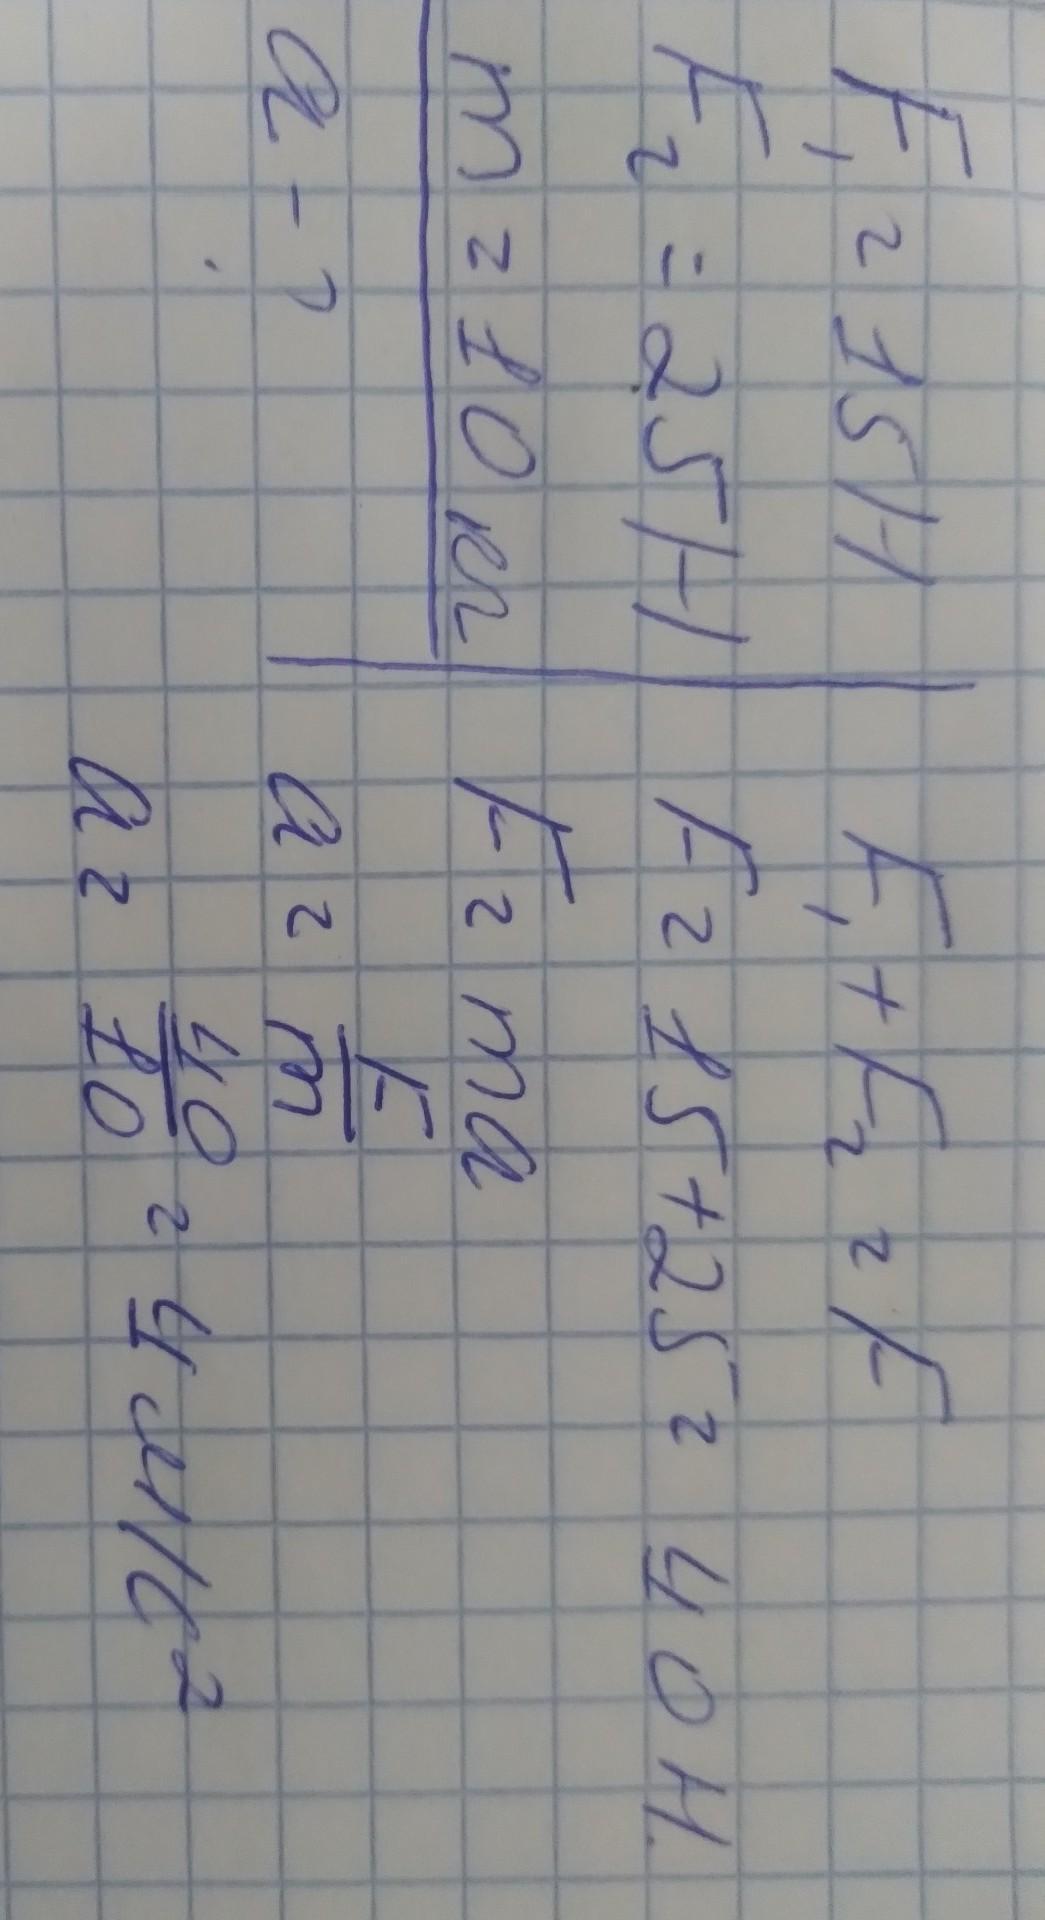 F₁ = 15 Н
F₂ = 25 Н
m = 10 кг
a - ?
F₁ + F₂ = F
F = 15 + 25 = 40 Н.
F = ma
a = F/m
a = 40/10 = 4 м/с²